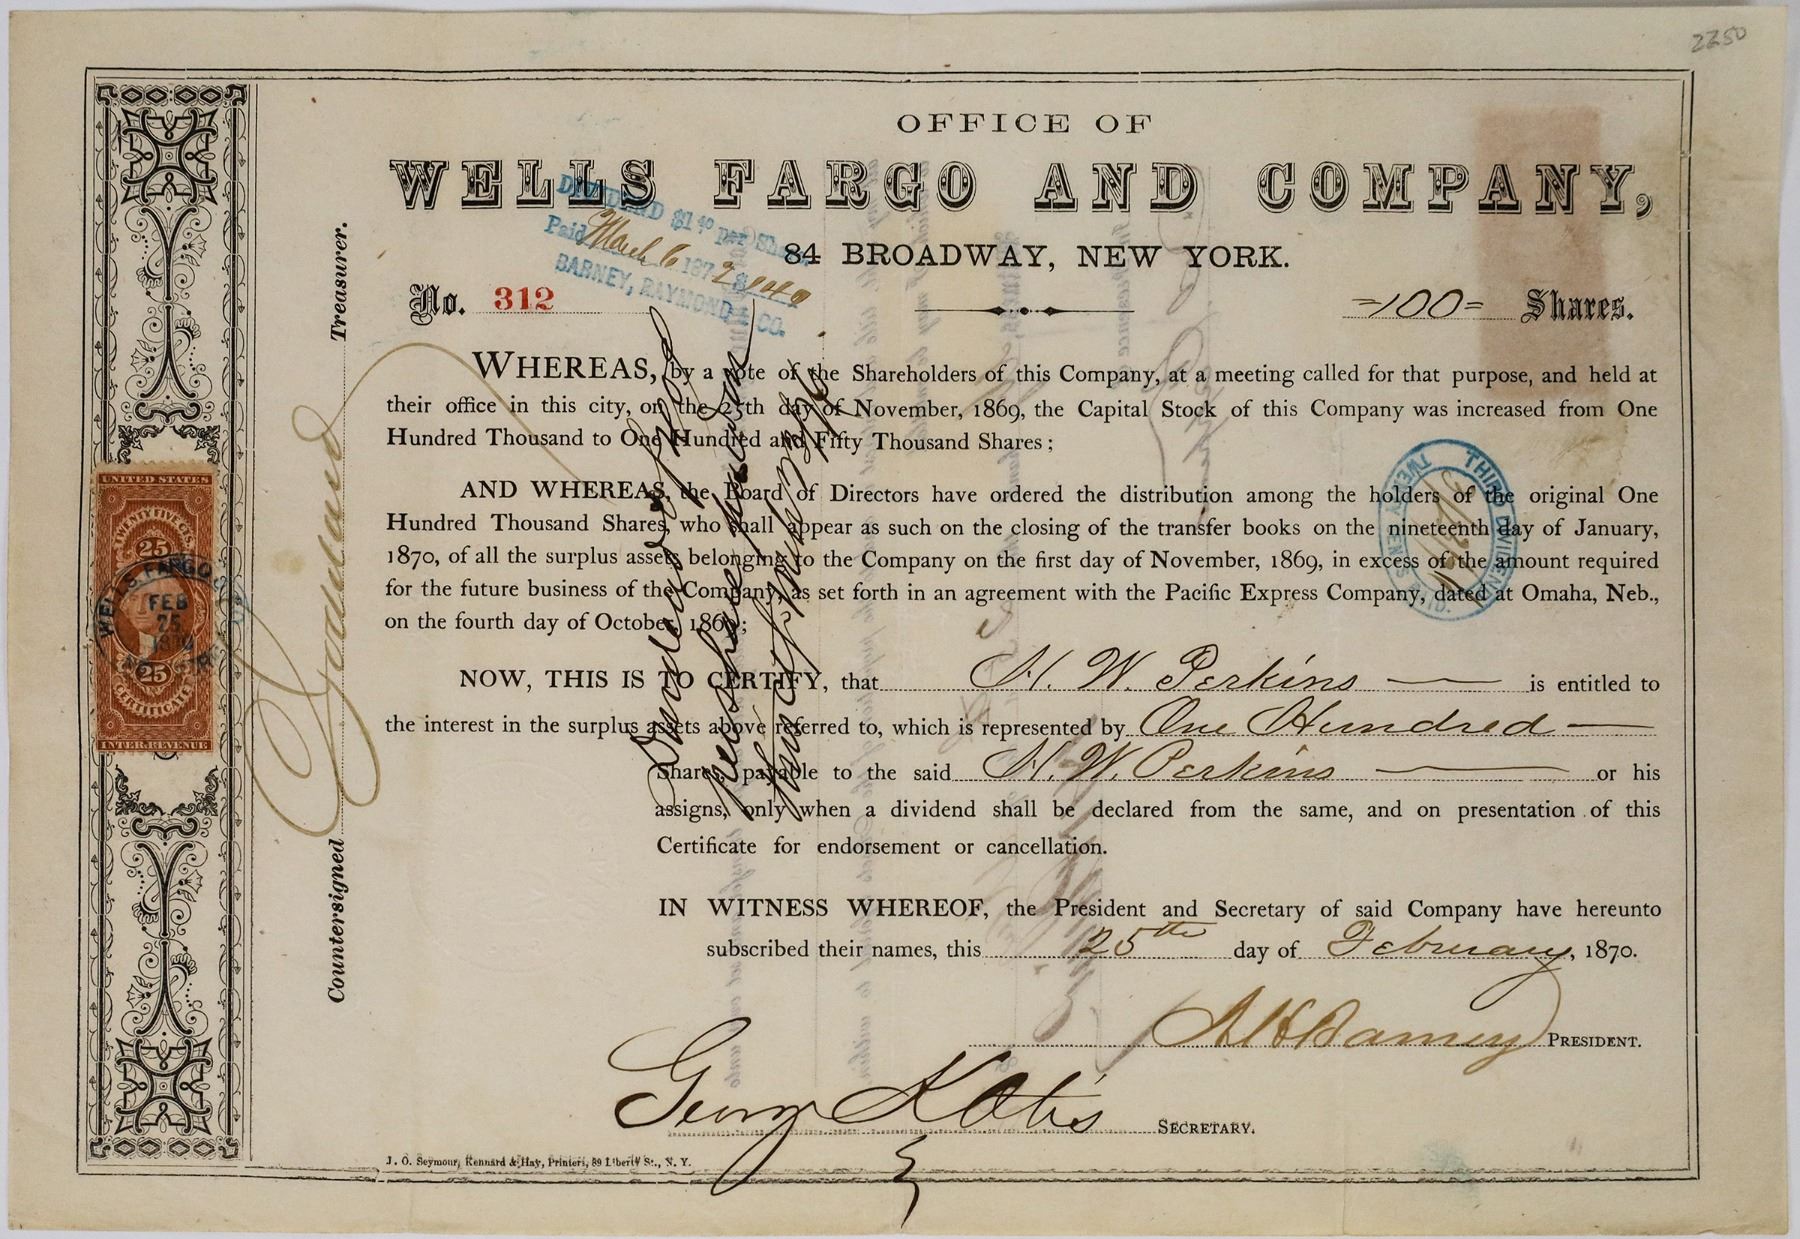 2250
OFFICE OF
WELLS FARGO AND COMPANY,
84 BROADWAY, NEW YORK.
No. 312
=100= Shares.
DIVIDEND $1 40 per Share
Paid March 6 1872 $140
BARNEY, RAYMOND & CO.
WHEREAS, by a vote of the Shareholders of this Company, at a meeting called for that purpose, and held at
their office in this city, on the 25th day of November, 1869, the Capital Stock of this Company was increased from One
Hundred Thousand to One Hundred and Fifty Thousand Shares;
AND WHEREAS, the Board of Directors have ordered the distribution among the holders of the original One
Hundred Thousand Shares, who shall appear as such on the closing of the transfer books on the nineteenth day of January,
1870, of all the surplus assets belonging to the Company on the first day of November, 1869, in excess of the amount required
for the future business of the Company, as set forth in an agreement with the Pacific Express Company, dated at Omaha, Neb.,
on the fourth day of October, 1869;
NOW, THIS IS TO CERTIFY, that H. W. Perkins is entitled to
the interest in the surplus assets above referred to, which is represented by One Hundred
Shares, payable to the said H. W. Perkins or his
assigns, only when a dividend shall be declared from the same, and on presentation of this
Certificate for endorsement or cancellation.
IN WITNESS WHEREOF, the President and Secretary of said Company have hereunto
subscribed their names, this 25th day of February, 1870.
A H Barney PRESIDENT.
George K Otis SECRETARY.
J. O. Seymour, Kennard & Hay, Printers, 89 Liberty St., N. Y.
Countersigned Treasurer.
UNITED STATES
TWENTY FIVE CTS.
25
WELLS FARGO
FEB
25
1870
25
CERTIFICATE
INTER. REVENUE
Dividend of
per share paid
THIRD DIVIDEND
TWENTY